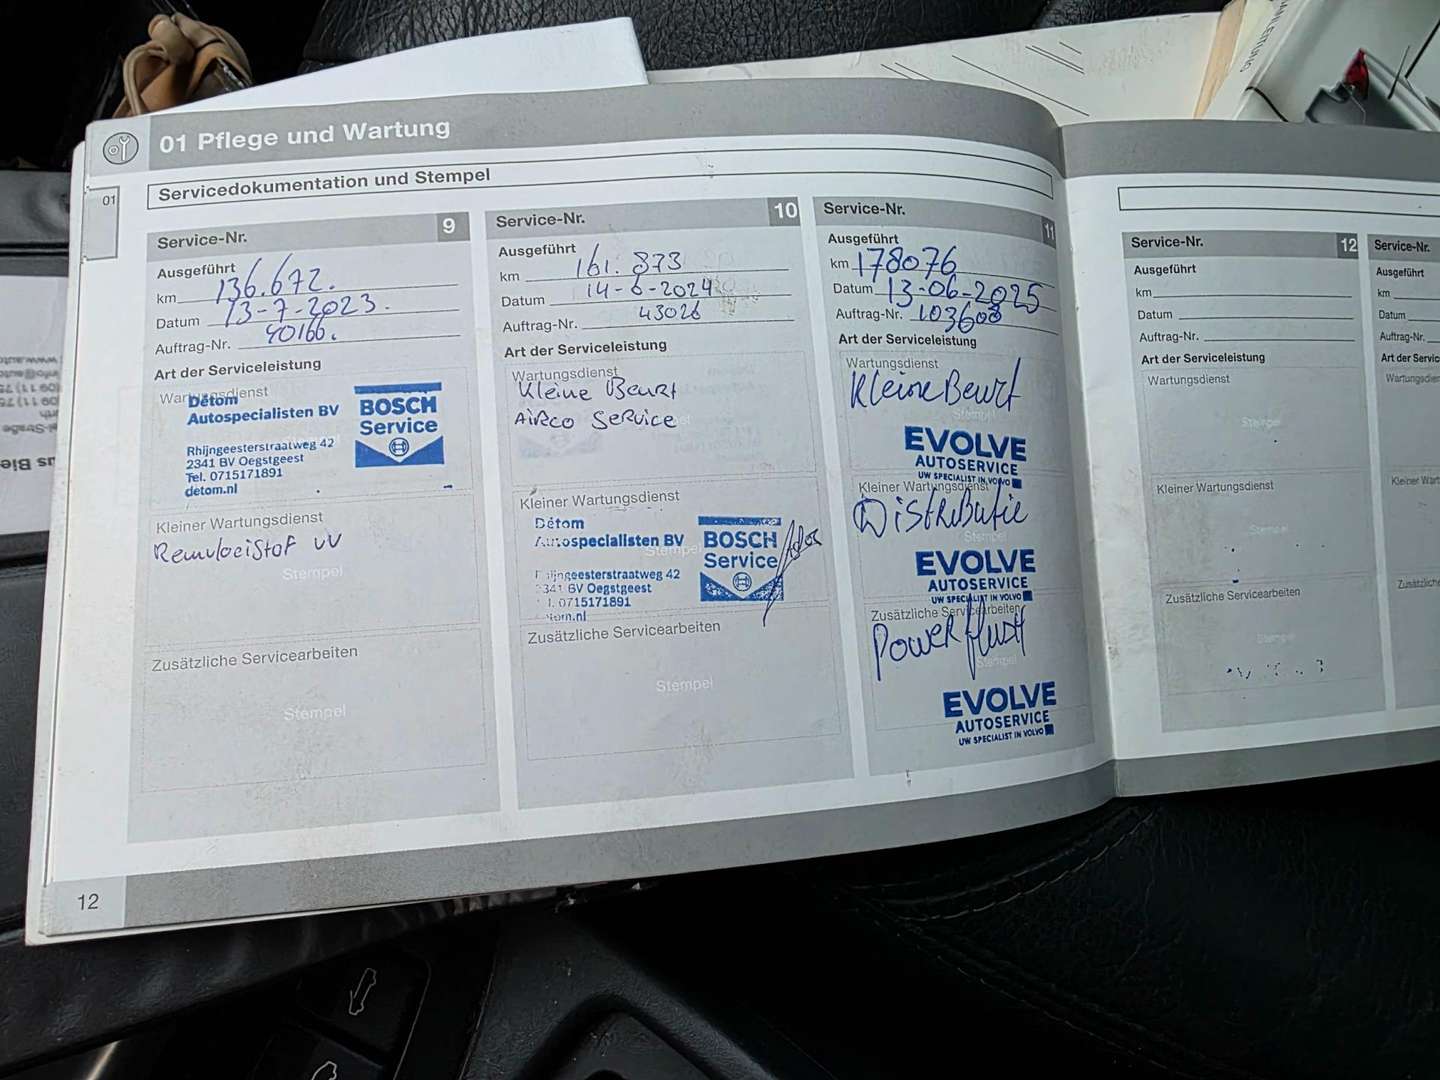 ANLEITUNG
01 Pflege und Wartung
01
Servicedokumentation und Stempel
Service-Nr. 9
Ausgeführt
km 136.672.
Datum 13-7-2023.
Auftrag-Nr. 40166.
Art der Serviceleistung
Wartungsdienst
Détom
Autospecialisten BV
Rhijngeesterstraatweg 42
2341 BV Oegstgeest
Tel. 0715171891
detom.nl
BOSCH
Service
Kleiner Wartungsdienst
Remvloeistof vv
Stempel
Zusätzliche Servicearbeiten
Stempel
Service-Nr. 10
Ausgeführt
km 161.873
Datum 14-6-2024
Auftrag-Nr. 43026
Art der Serviceleistung
Wartungsdienst
Kleine Beurt
Airco Service
Kleiner Wartungsdienst
Détom
Autospecialisten BV
Stempel
ijngeesterstraatweg 42
341 BV Oegstgeest
l. 0715171891
etom.nl
BOSCH
Service
Zusätzliche Servicearbeiten
Stempel
Service-Nr. 11
Ausgeführt
km 178076
Datum 13-06-2025
Auftrag-Nr. 103608
Art der Serviceleistung
Wartungsdienst
Kleine Beurt
Stempel
EVOLVE
AUTOSERVICE
UW SPECIALIST IN VOLVO
Kleiner Wartungsdienst
Distributie
Stempel
EVOLVE
AUTOSERVICE
UW SPECIALIST IN VOLVO
Zusätzliche Servicearbeiten
Powerflush
Stempel
EVOLVE
AUTOSERVICE
UW SPECIALIST IN VOLVO
12
Service-Nr. 12
Ausgeführt
km
Datum
Auftrag-Nr.
Art der Serviceleistung
Wartungsdienst
Stempel
Kleiner Wartungsdienst
Stempel
Zusätzliche Servicearbeiten
Stempel
Service-Nr.
Ausgeführt
km
Datum
Auftrag-Nr.
Art der Servic
Wartungsdien
Kleiner Wart
Zusätzliche